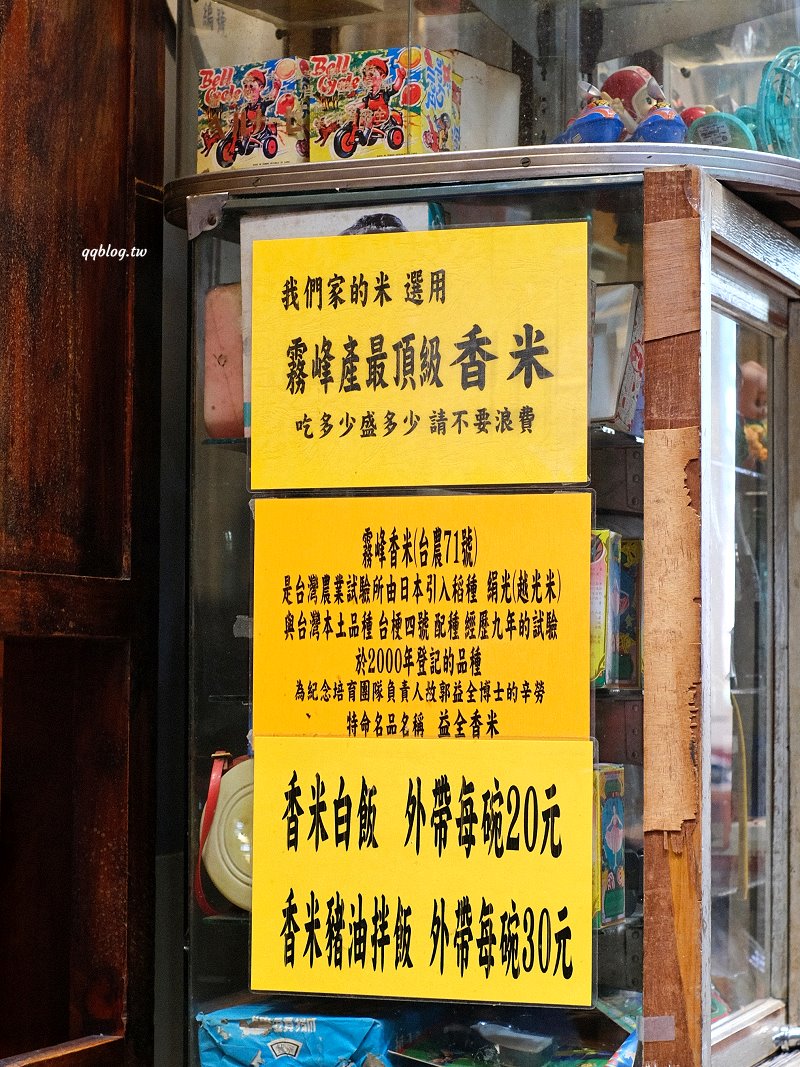 Bell Cycle
Bell Cycle
qqblog.tw
我們家的米 選用
霧峰產最頂級香米
吃多少盛多少 請不要浪費
霧峰香米(台農71號)
是台灣農業試驗所由日本引入稻種 絹光(越光米)
與台灣本土品種 台梗四號 配種 經歷九年的試驗
於2000年登記的品種
為紀念培育團隊負責人故郭益全博士的辛勞
特命名品名稱 益全香米
香米白飯 外帶每碗20元
香米豬油拌飯 外帶每碗30元